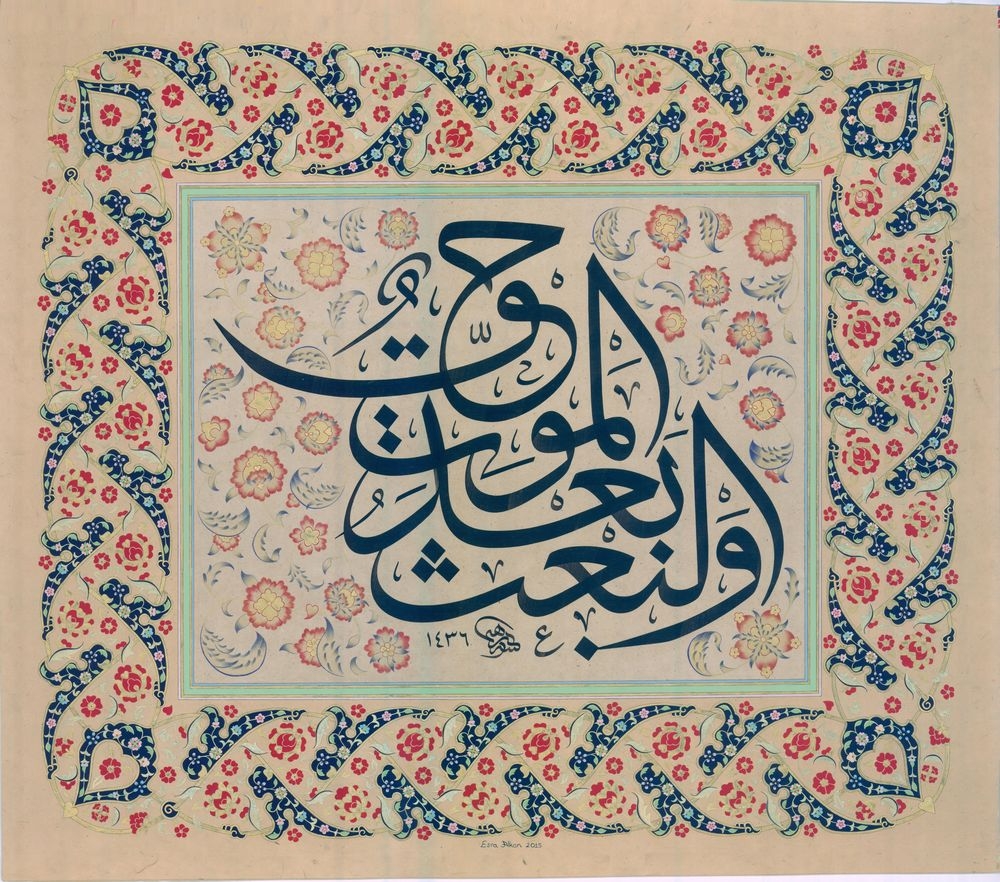 والبعث بعد الموت حق
١٤٣٦
Esra Alkan 2015